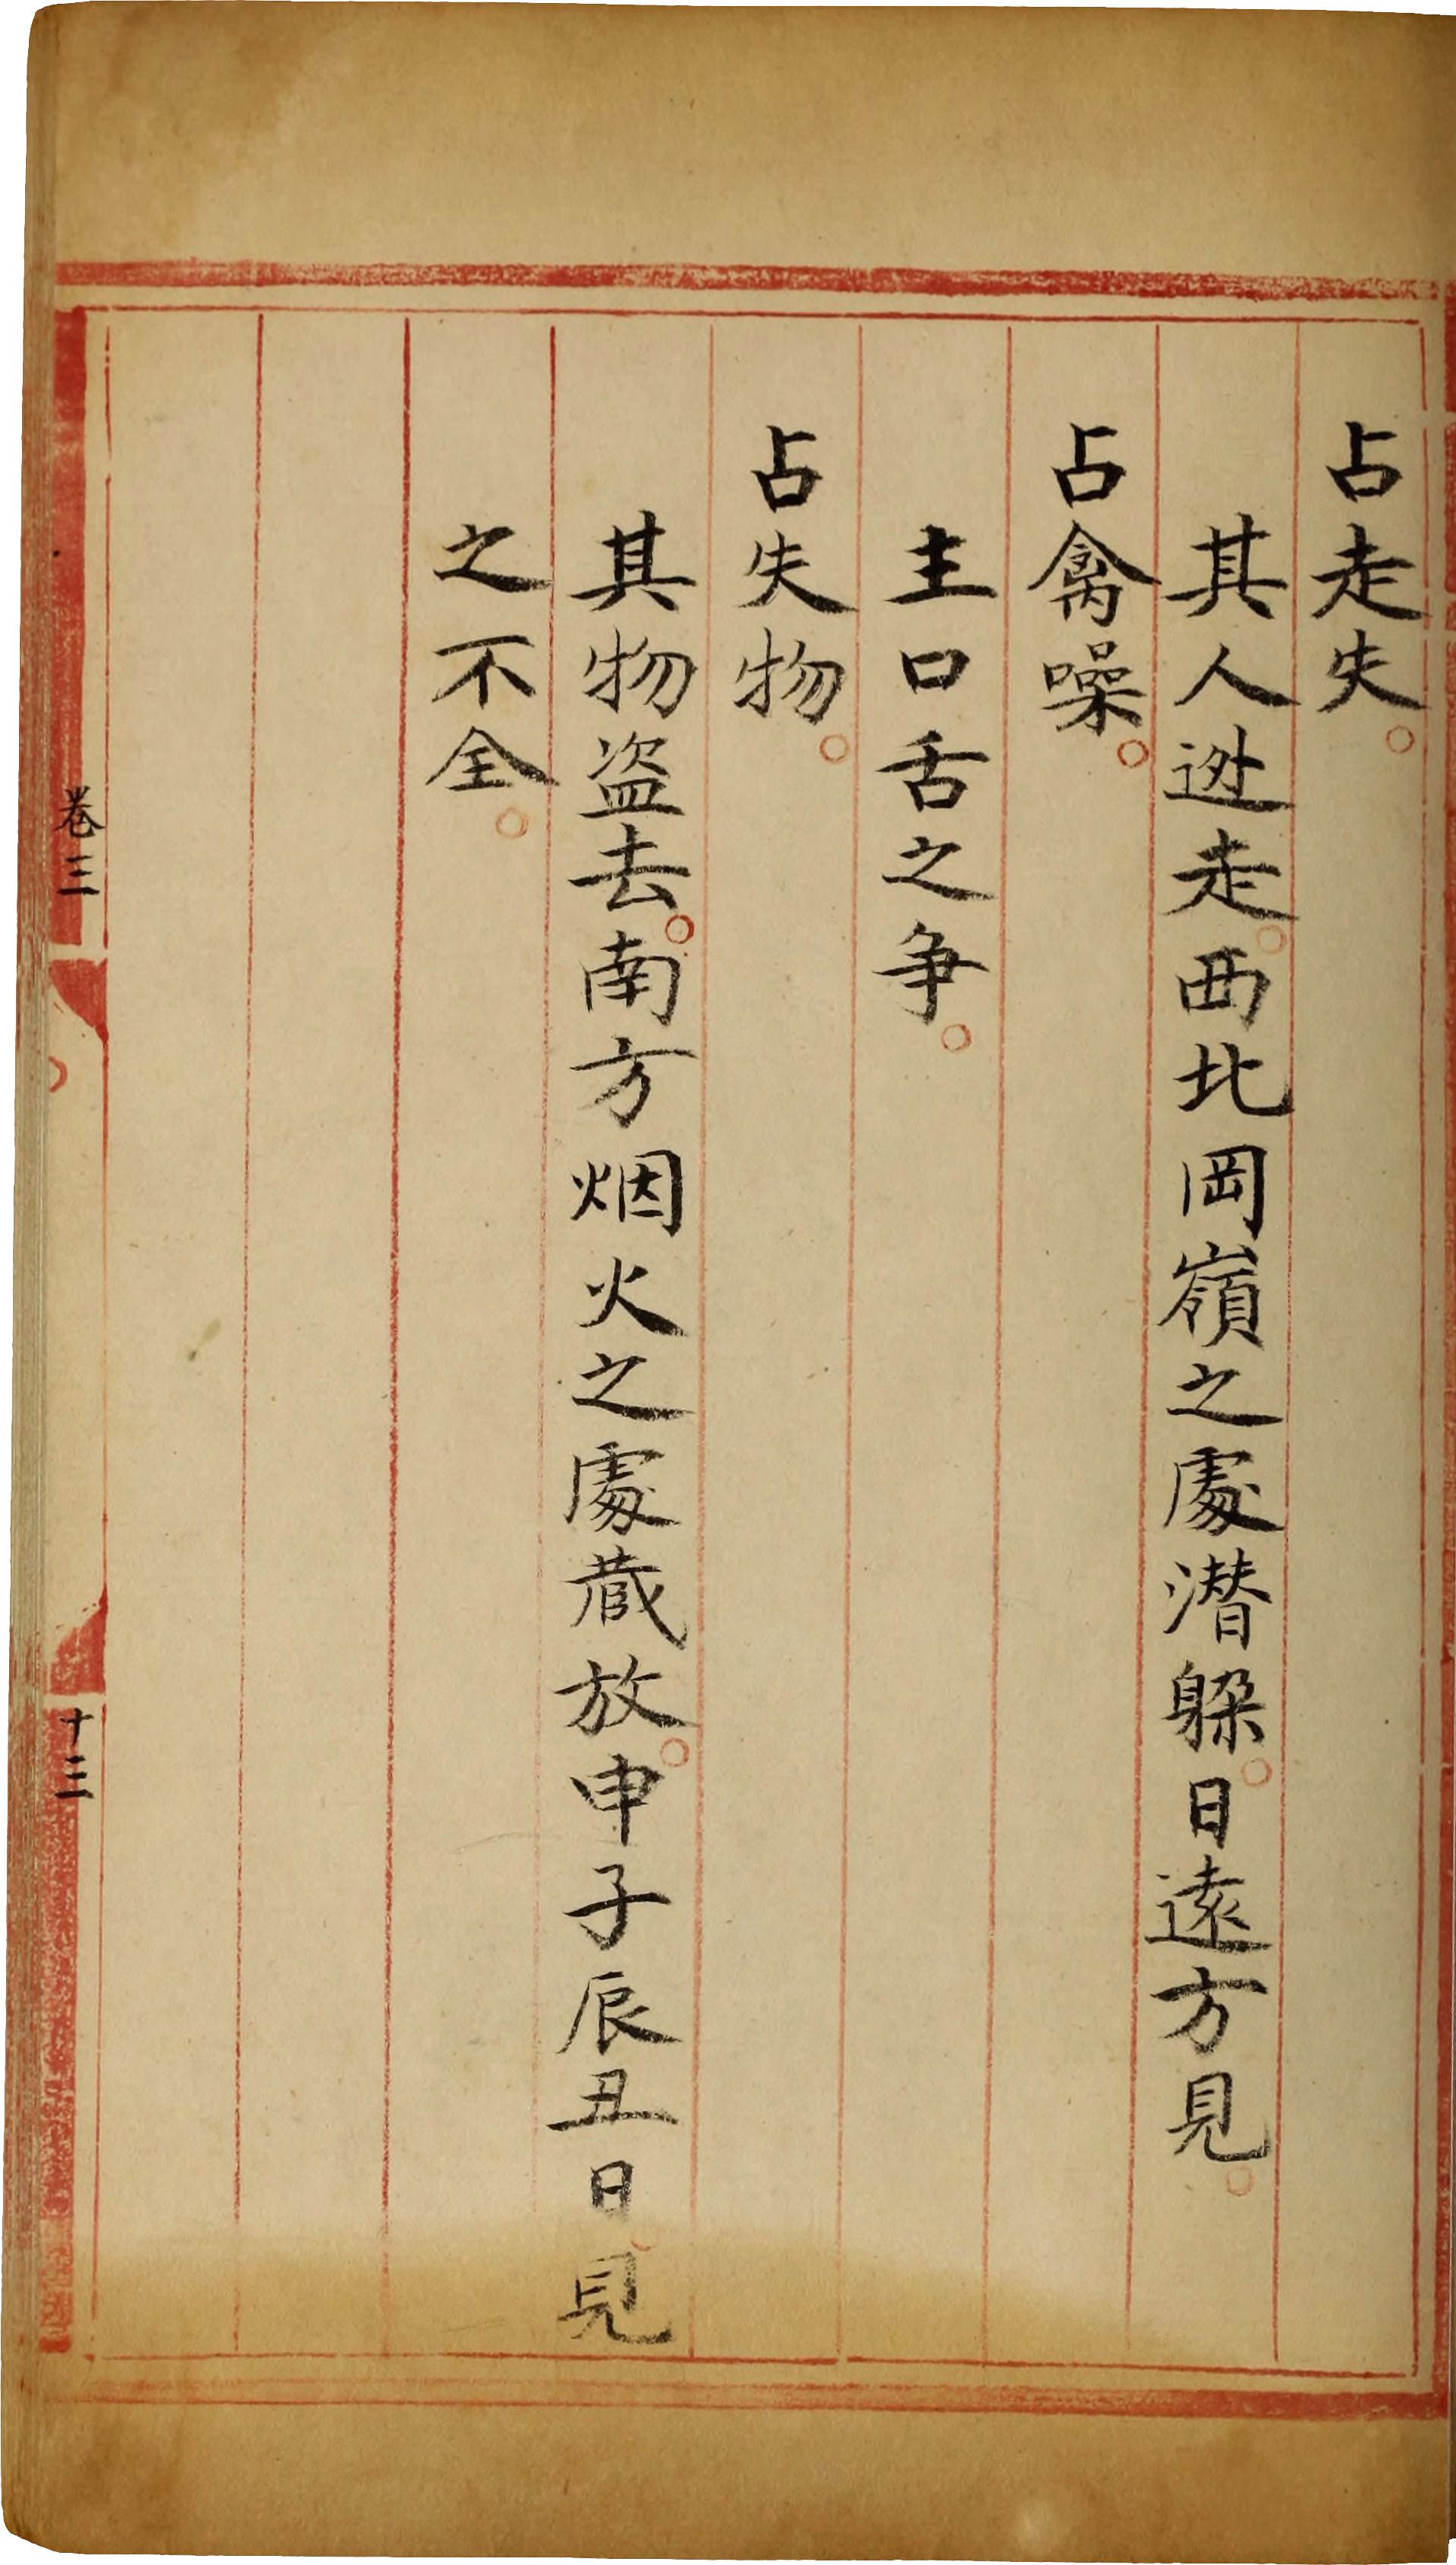 占走失。
其人迯走。西北岡嶺之處潜躲。日遠方見。
占禽噪。
主口舌之争。
占失物。
其物盗去。南方烟火之處蔵放。申子辰丑日。見
之不全。
卷三
十三